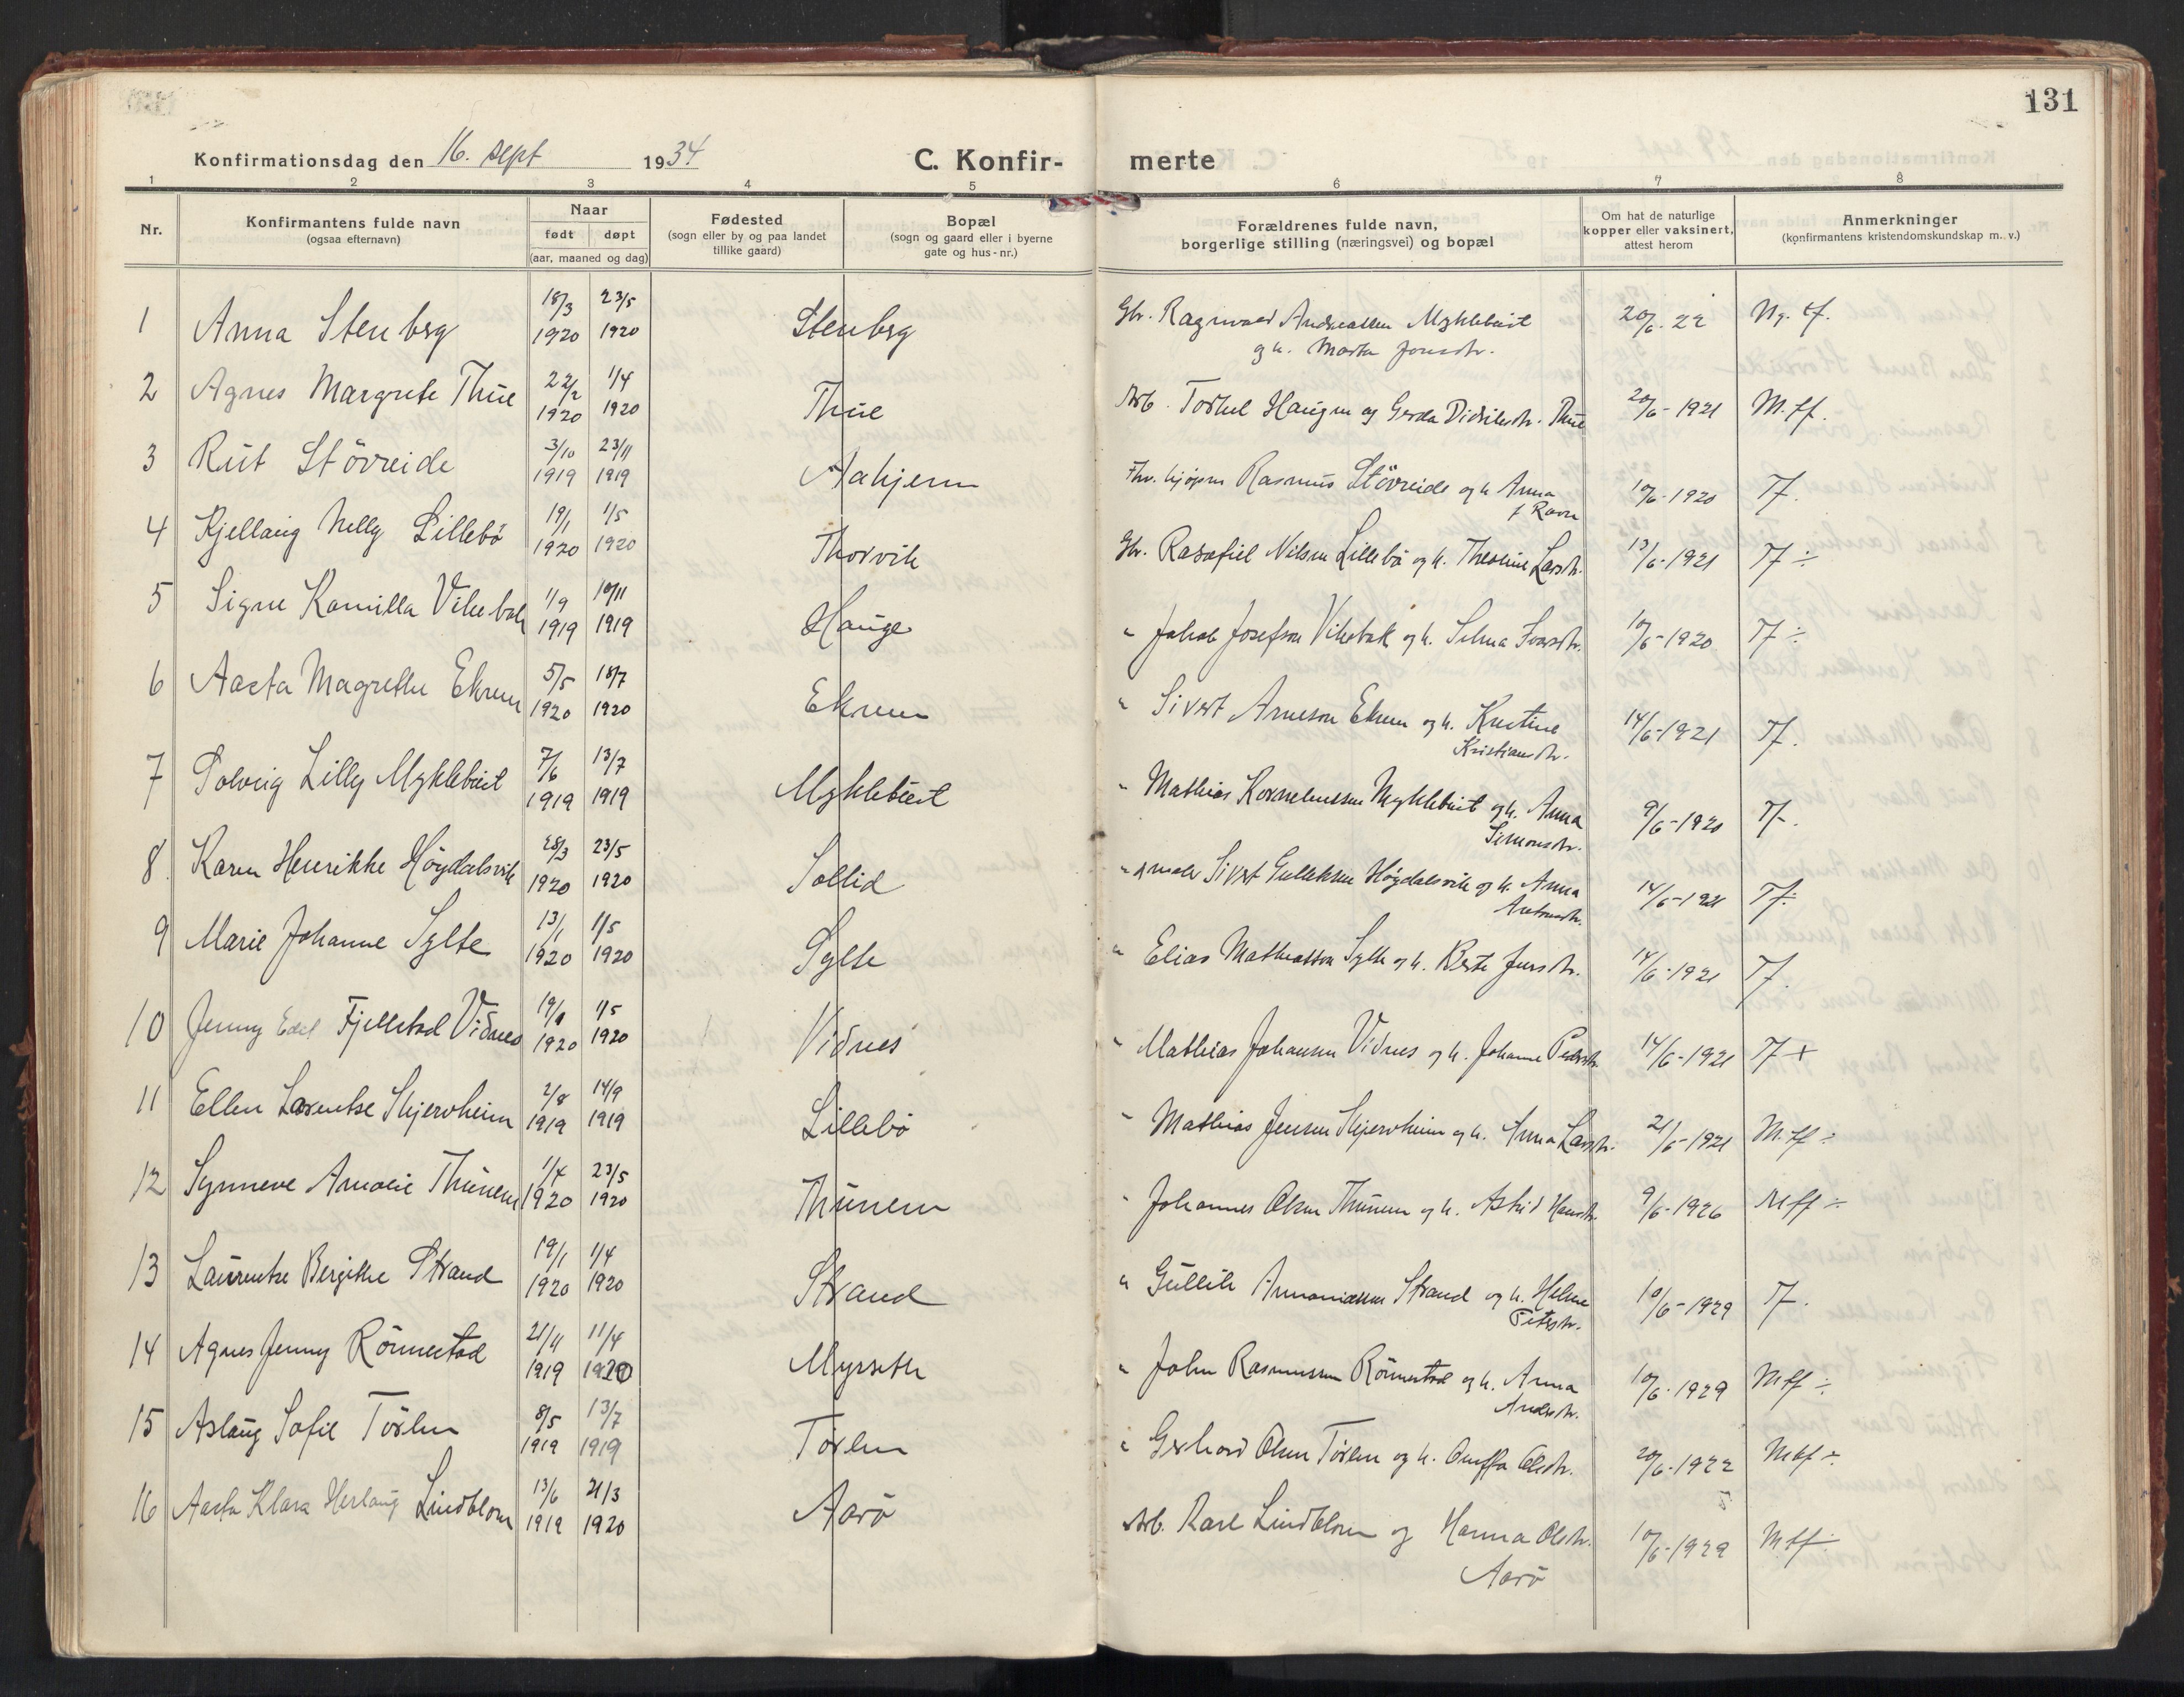 131
Konfirmationsdag den 16. sept 1934 C. Konfir- merte
1 2 3 4 5 6 7 8
Nr. Konfirmantens fulde navn (ogsaa efternavn) Naar født døpt (aar, maaned og dag) Fødested (sogn eller by og paa landet tillike gaard) Bopæl (sogn og gaard eller i byerne gate og hus-nr.) Forældrenes fulde navn, borgerlige stilling (næringsvei) og bopæl Om hat de naturlige kopper eller vaksinert, attest herom Anmerkninger (konfirmantens kristendomskundskap m. v.)
1 Anna Stenberg 18/3 1920 23/5 1920 Stenberg Gbr. Ragnvald Andreassen Myklebust og h. Marta Jonsdtr. 20/6-22 Ng. tf.
2 Agnes Margrete Thue 22/2 1920 1/4 1920 Thue Arb. Torkel Haugen og Gerda Didriksdtr. Thue 20/6-1921 M.tf.
3 Rut Stövreide 3/10 1919 23/11 1919 Aahjem Fhv. kjøpm Rasmus Stövreide og h Anna f Ravn 10/6-1920 Tf.
4 Kjellaug Nelly Lillebö 19/1 1920 1/5 1920 Thorvik Gbr. Rasafiel Nilsen Lillebö og h. Theoline Larsdtr. 13/6-1921 Tf ÷
5 Signe Kamilla Vikebak 1/9 1919 10/11 1919 Hauge " Jakob Josefson Vikebak og h. Selma Ivarsdtr. 10/6-1920 Tf ÷
6 Aasta Magrethe Ekrem 5/5 1920 18/7 1920 Ekrem " Sivert Arneson Ekrem og h. Kristine Kristiansdtr. 14/6-1921 Tf.
7 Solveig Lilly Myklebust 7/6 1919 13/7 1919 Myklebust " Mathias Korneliussen Myklebust og h. Anna Simonsdtr. 9/6-1920 Tf.
8 Karen Henrikke Högdalsvik 28/3 1920 23/5 1920 Sollid " maler Sivert Gulleksen Högdalsvik og h. Anna Antonsdtr. 14/6-1921 Tf.
9 Marie Johanne Sylte 13/1 1920 1/5 1920 Sylte " Elias Matheasson Sylte og h. Berte Jensdtr. 14/6-1921 Tf.
10 Jenny Edel Fjellstad Vidnes 19/1 1920 1/5 1920 Vidnes " Mathias Johansen Vidnes og h. Johanne Pedersdtr. 14/6-1921 Tf +
11 Ellen Larentse Skjervheim 2/8 1919 14/9 1919 Lillebö " Mathias Jensen Skjervheim og h. Anna Larsdtr. 21/6-1921 M.tf ÷
12 Synneve Amalie Thunem 1/4 1920 23/5 1920 Thunem " Johannes Olsen Thunem og h. Astrid Hansdtr. 9/6-1926 Mtf ÷
13 Laurentse Bergithe Strand 19/1 1920 1/4 1920 Strand " Gullik Ananiassen Strand og h. Helene Petersdtr. 10/6-1929 Tf.
14 Agnes Jenny Rönnestad 21/11 1919 11/4 1920 Myrseth " John Rasmussen Rönnestad og h. Anna Andersdtr. 10/6-1929 Mtf ÷
15 Aslaug Sofie Törlen 8/5 1919 13/7 1919 Törlen " Gerhard Olsen Törlen og h. Oluffa Olsdtr. 20/6-1922 Mtf ÷
16 Aasta Klara Herlaug Lindblom 13/6 1919 21/3 1920 Aarö Arb. Karl Lindblom og Hanna Olsdtr. Aarö 10/6-1929 Mtf ÷